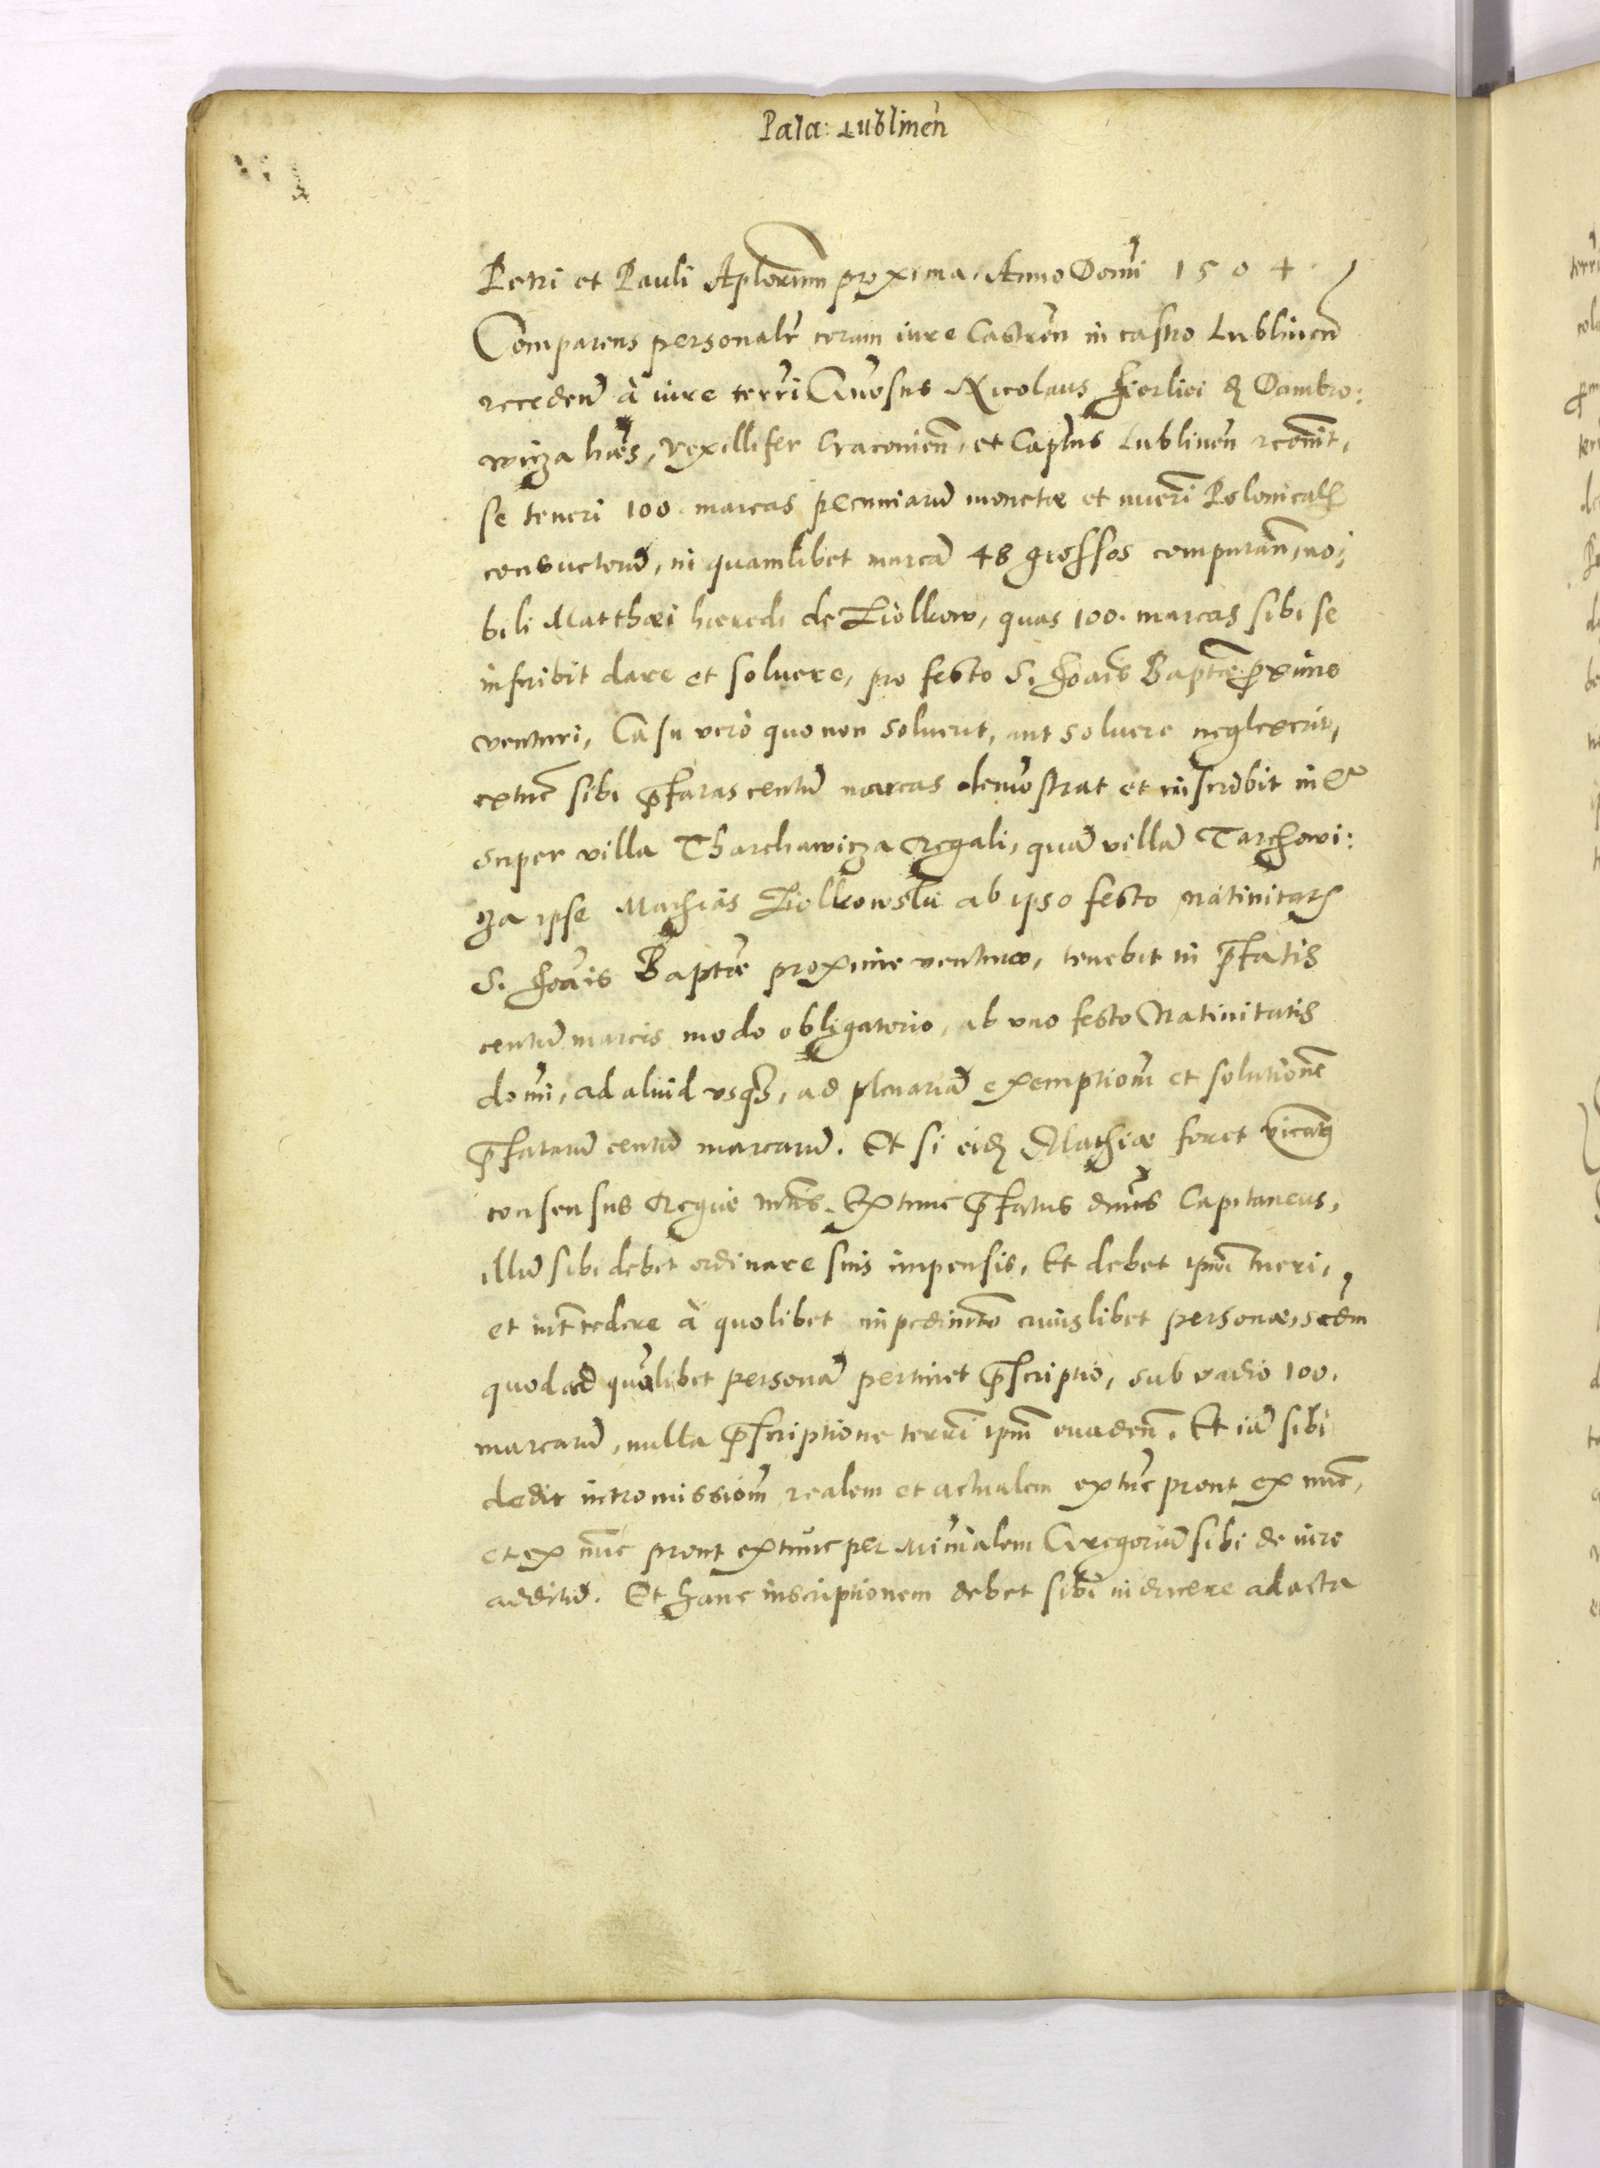 Pala: Lublinen
Petri et Pauli Aplorum proxima, Anno Domi 1504.
Comparens personalr coram iure Castren in castro Lublinen
recedend à iure terri Gnosus Nicolaus Firliei de Dambro:
wicza hæs, Vexillifer Cracovien, et Captus Lublinen recovit,
se teneri 100 marcas pecuniarum monetæ et nueri Polonicalis
consuetend, in quamlibet marcã 48 grossos computan, no:
bili Matthæi hæredi de Ziolkow, quas 100. marcas sibi se
inscribit dare et soluere, pro festo S. Joais Baptæ proximo
venturi, Casu verò quo non soluerit, aut soluere neglexerit,
extunc sibi pfatas centum marcas demostrat et inscribit in et
super villa Tharchawicza Regali, quã villã Tarchowi:
cza ipse Mathias Ziolkowski ab ipso festo Natiuitatis
S. Joais Baptæ proxime venturo, tenebit in pfatis
centum marcis modo obligatorio, ab uno festo Natiuitatis
domi, ad aliud usque, ad plenariã exemptiom et solutionē
pfatarum centum marcarum. Et si eidem Mathiæ foret
consensus Regiæ mtis. Extunc pfatus dnus Capitaneus,
illum sibi debet ordinare suis impensis, Et debet ipm tueri,
et intcedere à quolibet impedimto cuiuslibet personæ,
quod ad quālibet personã pertinet pscriptio, sub vadio 100.
marcarum, nulla pscriptione terri ipm euaden. Et iã sibi
dedit intromissiom realem et actualem extunc prout ex nunc,
et ex nunc prout extunc per Minialem Gregorium sibi de iure
additum. Et hanc inscriptionem debet sibi inducere ad acta